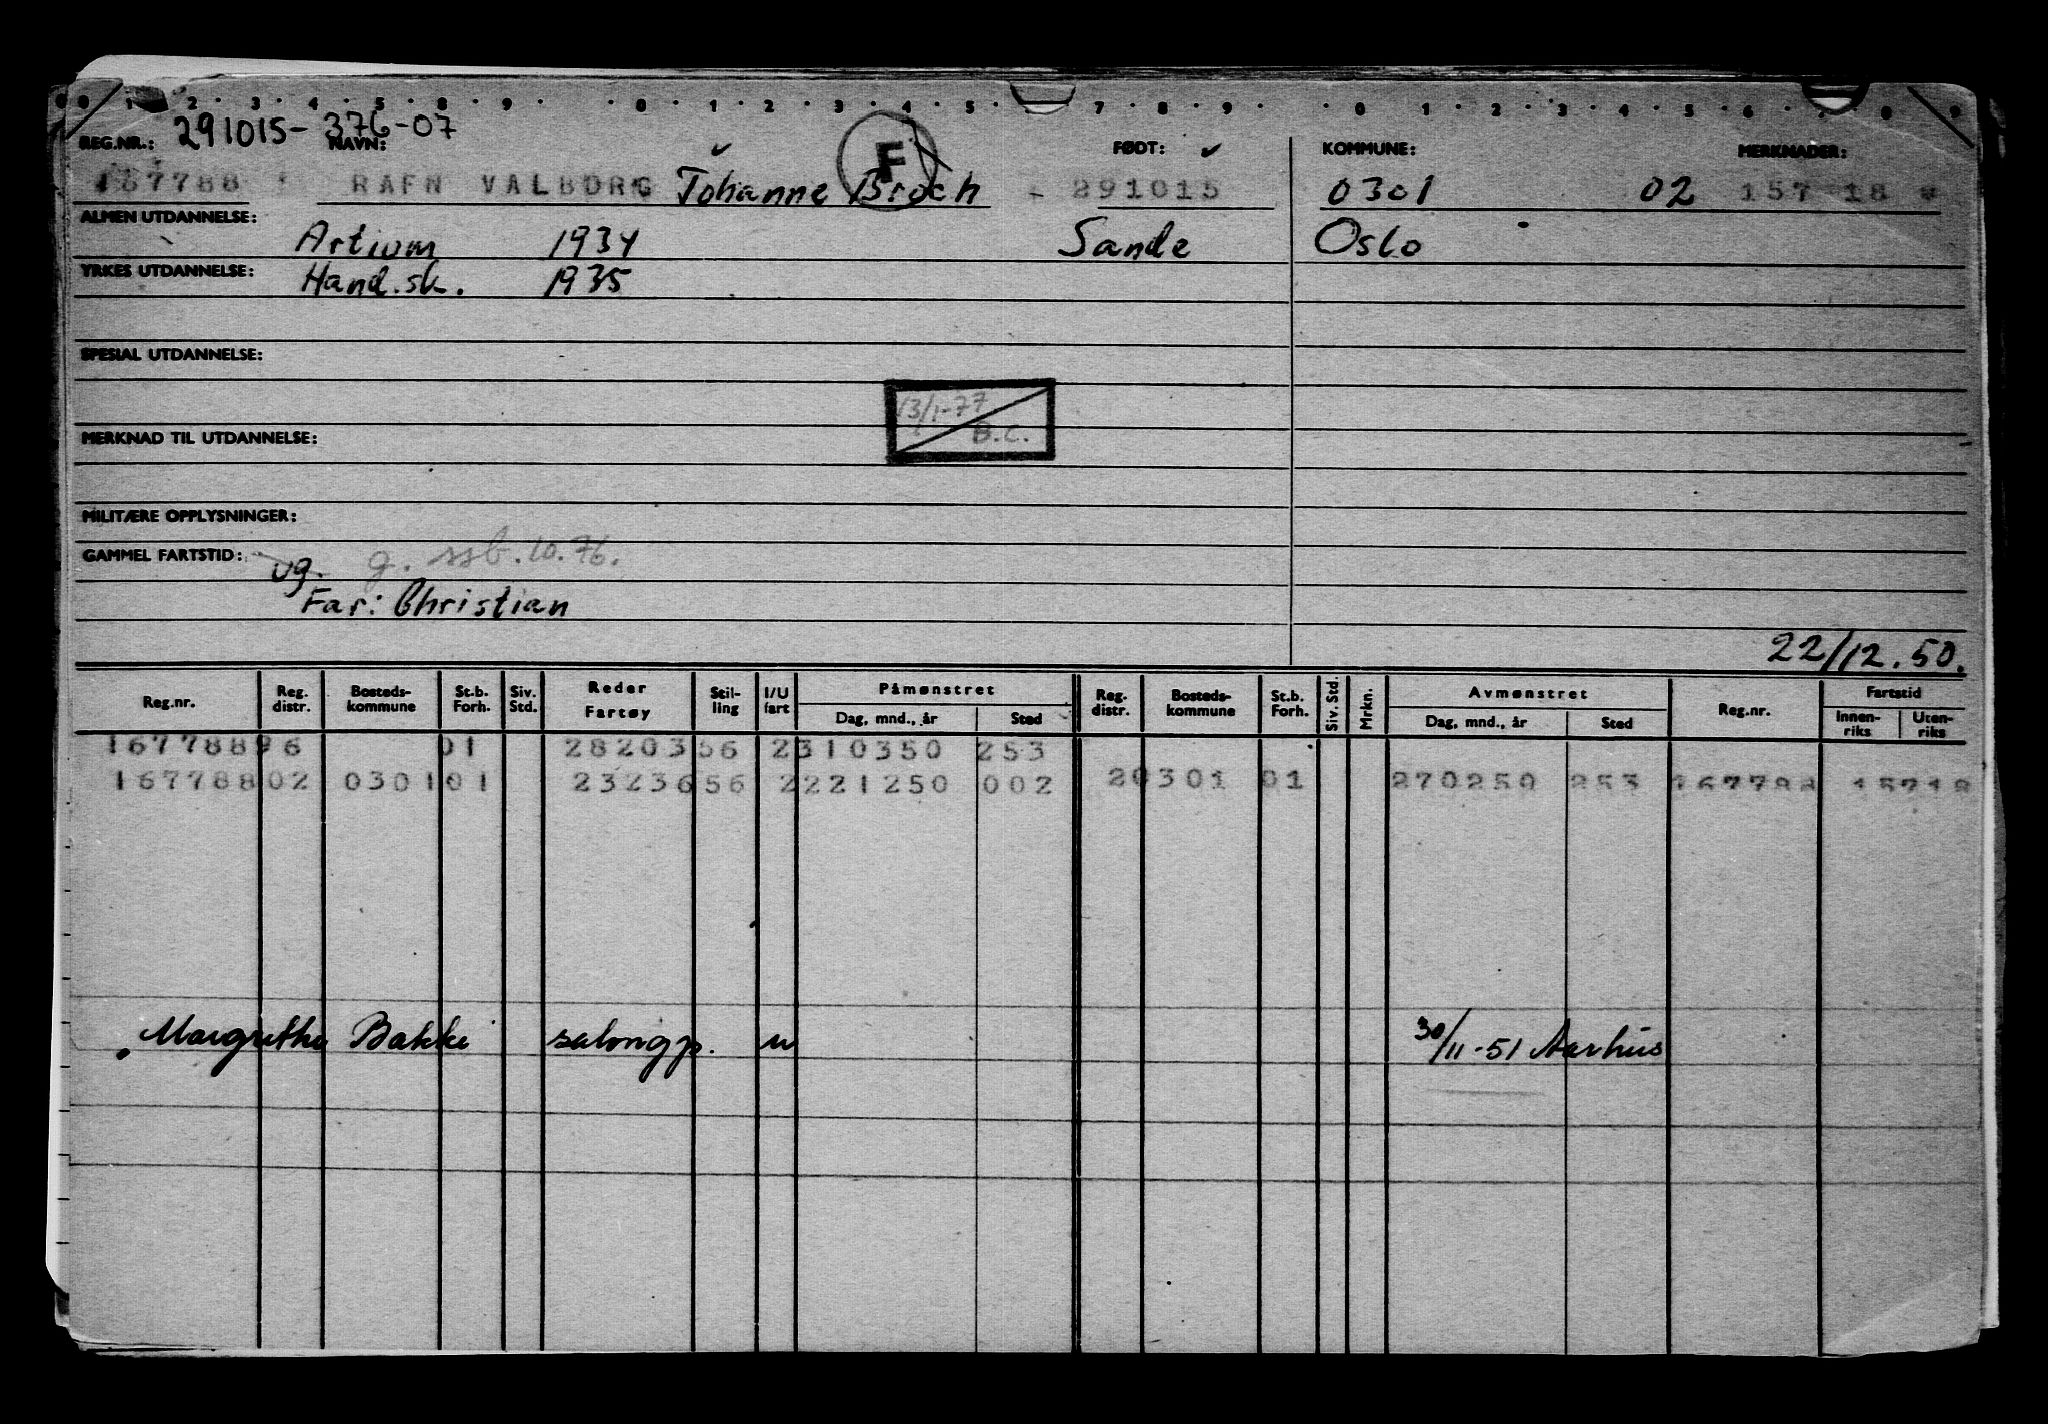 0 1 2 3 4 5 8 9 0 1 2 3 4 5 7 8 9 0 1 2 3 4 5 6 8 9
REG.NR.: 291015-376-07 NAVN: F FØDT: KOMMUNE: MERKNADER:
167788 RAFN VALBORG Johanne Broch 291015 0301 02 157 18 *
ALMEN UTDANNELSE: Artium 1934 Sande Oslo
YRKES UTDANNELSE: Hand.sk. 1935
SPESIAL UTDANNELSE:
13/1-77 B.C.
MERKNAD TIL UTDANNELSE:
MILITÆRE OPPLYSNINGER:
GAMMEL FARTSTID: vg. g. ssb. 10.76.
Far: Christian
22/12.50.
Reg.nr. Reg. distr. Bosteds-kommune St.b. Forh. Siv. Std. Reder Fartøy Stil-ling I/U fart Påmønstret Dag, mnd., år Sted Reg. distr. Bosteds-kommune St.b. Forh. Siv. Std. Mrkn. Avmønstret Dag, mnd., år Sted Reg.nr. Fartstid Innen-riks Uten-riks
16778896 01 2820356 2310350 253
16778802 030101 2323656 2221250 002 20301 01 270250 253 167788 15718
Margrethe Bakke salongp. u 30/11-51 Aarhus